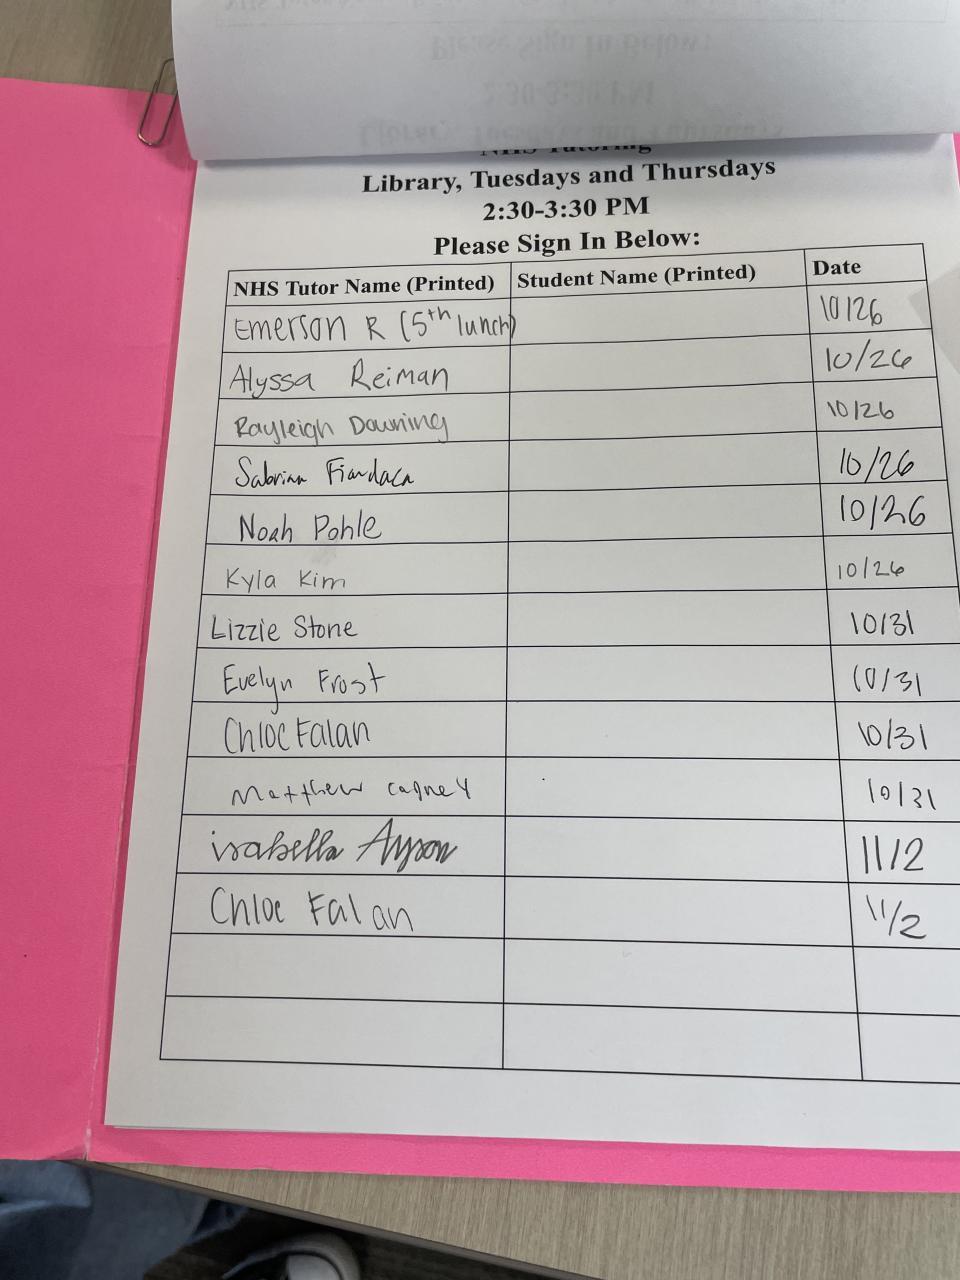 NHS Tutoring
Library, Tuesdays and Thursdays
2:30-3:30 PM
Please Sign In Below:
NHS Tutor Name (Printed) Student Name (Printed) Date
Emerson R (5th lunch) 10/26
Alyssa Reiman 10/26
Rayleigh Downing 10/26
Sabrina Fiandaca 10/26
Noah Pohle 10/26
Kyla Kim 10/26
Lizzie Stone 10/31
Evelyn Frost 10/31
Chloe Falan 10/31
Matthew Cagney 10/31
isabella 11/2
Chloe Falan 11/2